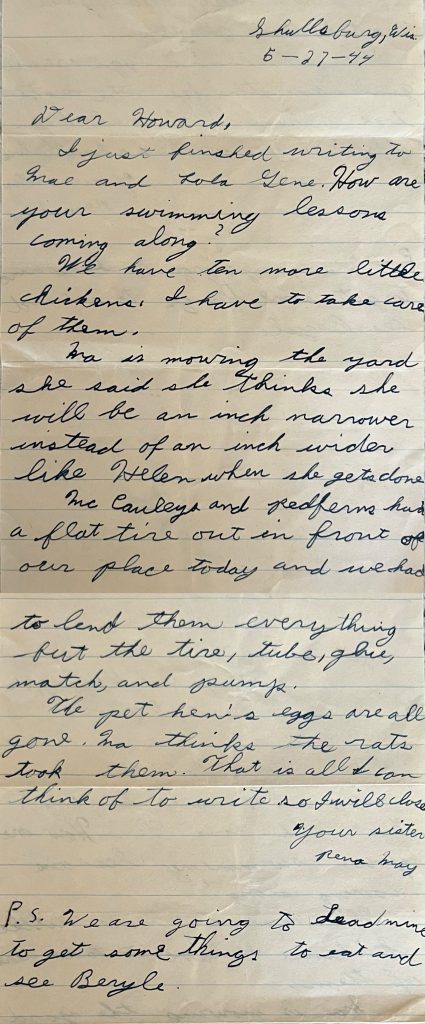 Shullsburg, Wis.
5-27-44
Dear Howard,
I just finshed writing to
Mae and Lola Gene. How are
your swimming lessons
coming along?
We have ten more little
chickens. I have to take care
of them.
Ma is mowing the yard
she said she thinks she
will be an inch narrower
instead of an inch wider
like Helen when she gets done
Mc Cauleys and Redferns had
a flat tire out in front of
our place today and we had
to lend them everything
but the tire, tube, glue,
match, and pump.
The pet hen's eggs are all
gone. Ma thinks the rats
took them. That is all I can
think of to write so I will close
Your sister
Rena May
P.S. We are going to Leadmine
to get some things to eat and
see Beryle.